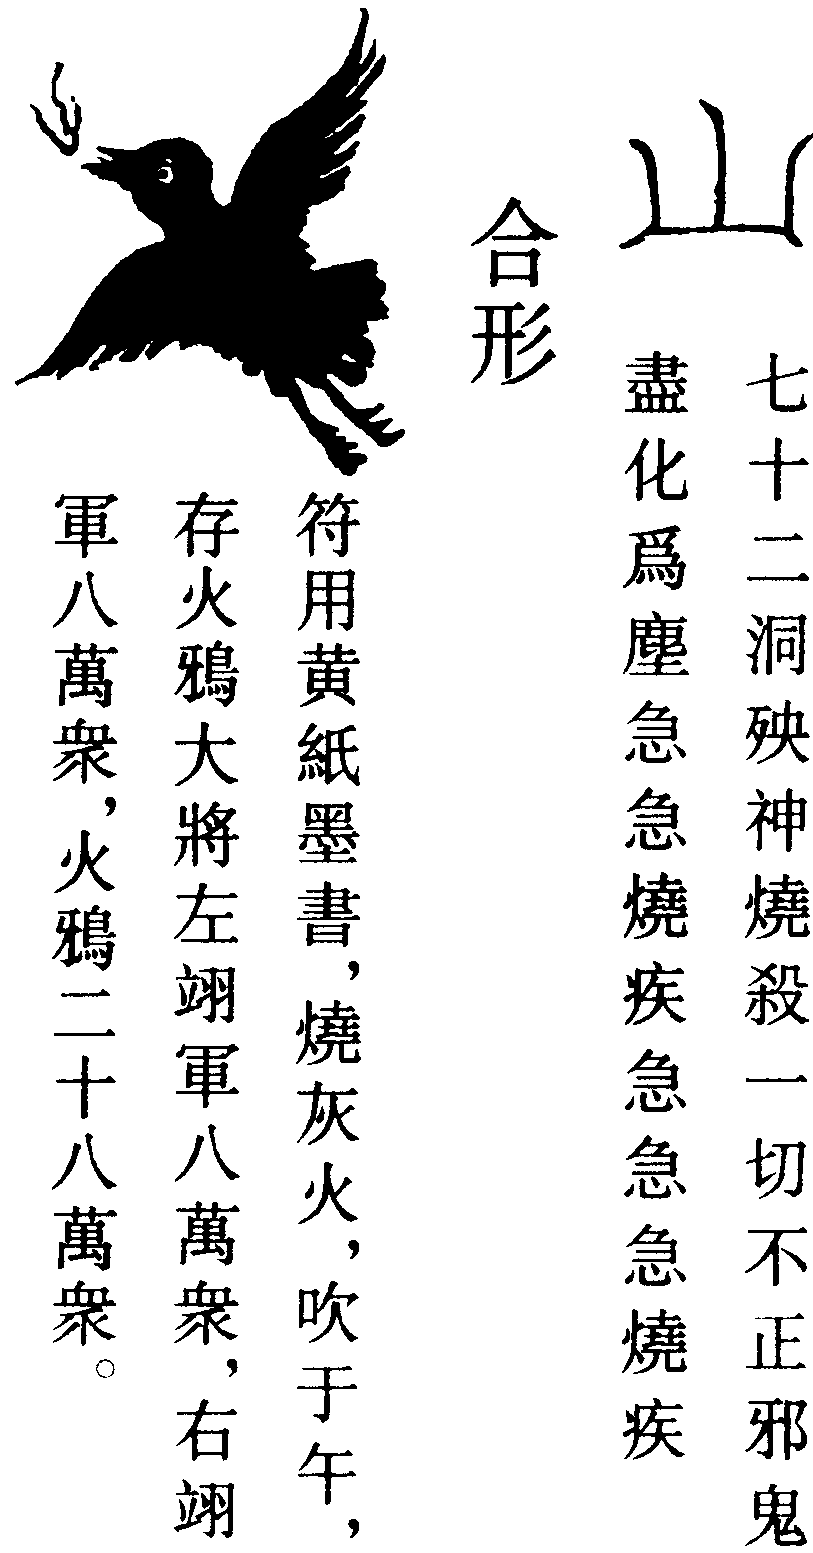 七十二洞殃神燒殺一切不正邪鬼
山
盡化爲塵急急燒疾急急急燒疾
合形
符用黄紙墨書，燒灰火，吹于午，
存火鴉大將左翊軍八萬衆，右翊
軍八萬衆，火鴉二十八萬衆。